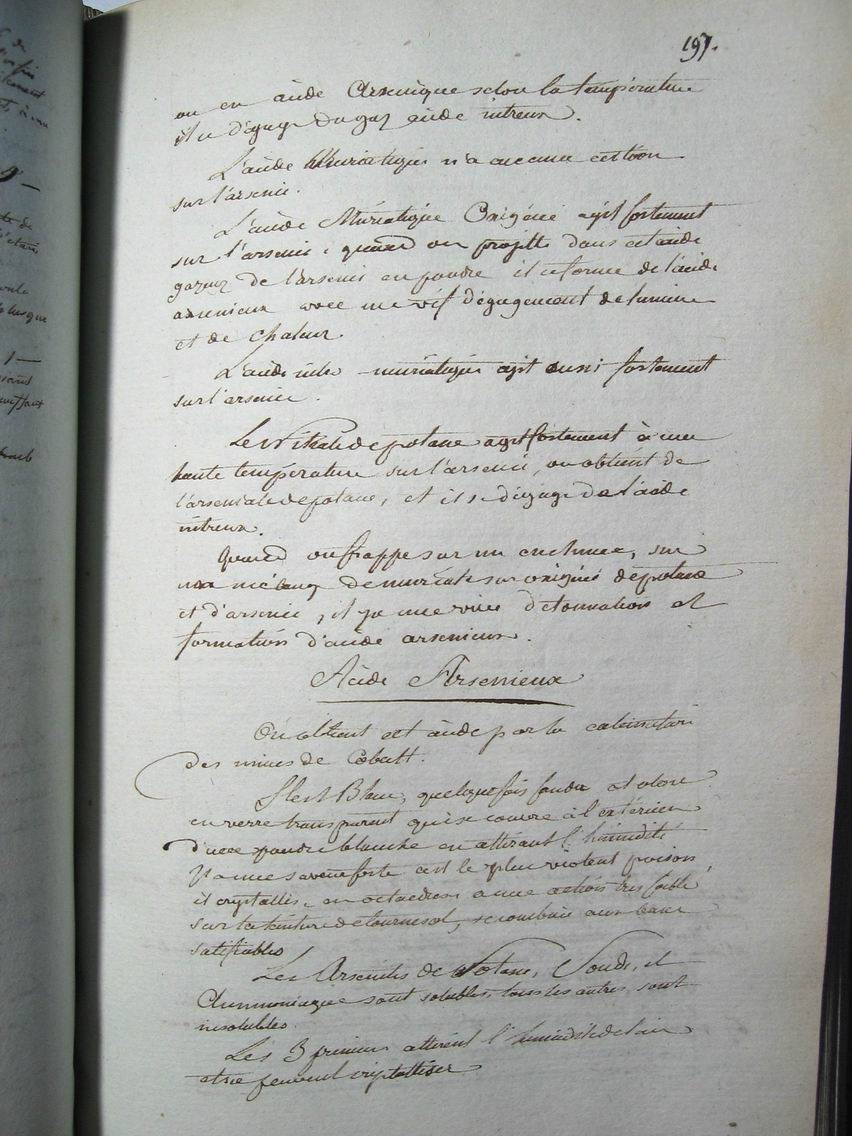 197.
ou en acide Arsenique selon la température
il se dégage du gaz acide nitreux.
L'acide Muriatique n'a aucune action
sur l'arsenic.
L'acide Muriatique Oxigéné agit fortement
sur l'arsenic, quand on projette dans cet acide
gazeux de l'arsenic en poudre il se forme de l'acide
arsenieux avec une vif dégagement de lumiere
et de chaleur.
L'acide nitro-muriatique agit aussi fortement
sur l'arsenic.
Le Nitrate de potasse agit fortement à une
haute température sur l'arsenic, on obtient de
l'arseniate de potasse, et il se dégage de l'acide
nitreux.
Quand on frappe sur un enclume, sur
un mélange de muriate sur oxigéné de potasse
et d'arsenic, il y a une vive détonnation et
formation d'acide arsenieux.
Acide Arsenieux
On obtient cet acide par la
des mines de Cobalt.
Il est Blanc, quelquefois fondu et
en verre transparent qui se couvre à l'extérieur
d'une poudre blanche en attirant l'humidité
Il a une saveur forte c'est le plus violent poison,
il crystallise en octaedres a une action très faible
sur la teinture de tournesol, se combine aux bases
salifiables
Les Arsenites de Potasse, Soude, et
Ammoniaque sont solubles, tous les autres sont
insolubles.
Les 3 premiers attirent l'humidité de l'air
et ne peuvent crystalliser